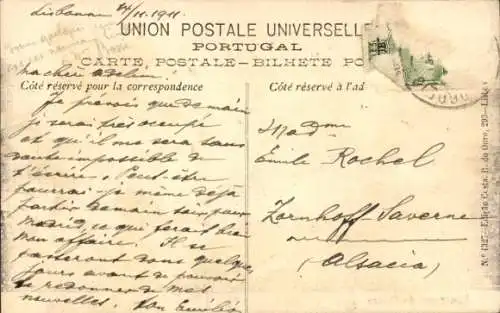 Lisbonne 4/11.1911
UNION POSTALE UNIVERSELLE
PORTUGAL
CARTE POSTALE - BILHETE PO
Ma chère Adeline!
Côté réservé pour la correspondence
Côté réservé à l'ad
Je prévois que demain
je serai très occupé
et qu'il me sera sans
doute impossible de
t'écrire. Peut-être
pourrai-je même déjà
partir demain soir pour
Madrid, ce qui ferait bien
mon affaire. Il se
passeront donc quelques
jours avant de pouvoir
te redonner de mes
nouvelles. Ton Emile
Madme
Emile Rochel
Zornhoff-Saverne
(Alsacia)
Nº 132 - Edição Costa, R. do Ouro, 295 - Lisboa